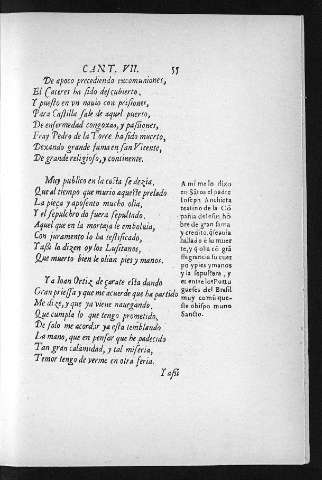 CANT. VII. 55
De apoco precediendo excomuniones,
El Caceres ha sido descubierto,
Y puesto en vn nauio con prisiones,
Para Castilla sale de aquel puerto,
De enfermedad congoxas, y passiones,
Fray Pedro de la Torre ha sido muerto,
Dexando grande fama en san Vicente,
De grande religioso, y continente.
Muy publico en la costa se dezia,
Que al tiempo que murio aqueste prelado
La pieça y aposento mucho olia,
Y el sepulchro do fuera sepultado.
Aquel que en la mortaja le emboluia,
Con juramento lo ha testificado,
Y assi lo dizen oy los Lusitanos,
Que muerto bien le olian pies y manos.
Ya Ioan Ortiz de çarate esta dando
Gran priessa y que me acuerde que ha partido
Me dize, y que ya viene nauegando.
Que cumpla lo que tengo prometido,
De solo me acordar ya esta temblando
La mano, que en pensar que he padecido
Tan gran calamidad, y tal miseria,
Temor tengo de verme en otra feria.
Y assi
A mi me lo dixo
en Sãtos el padre
Ioseph Anchieta
teatino de la Cõ
pañia de Iesus hõ
bre de gran fama
y credito, q̃ auia
hallado e lo muer
te, y q̃ olia cõ grã
fragrancia su cuer
po y pies y manos
y la sepultura, y
es entre los Portu
gueses del Brasil
muy comũ que
este obispo murio
Sancto.